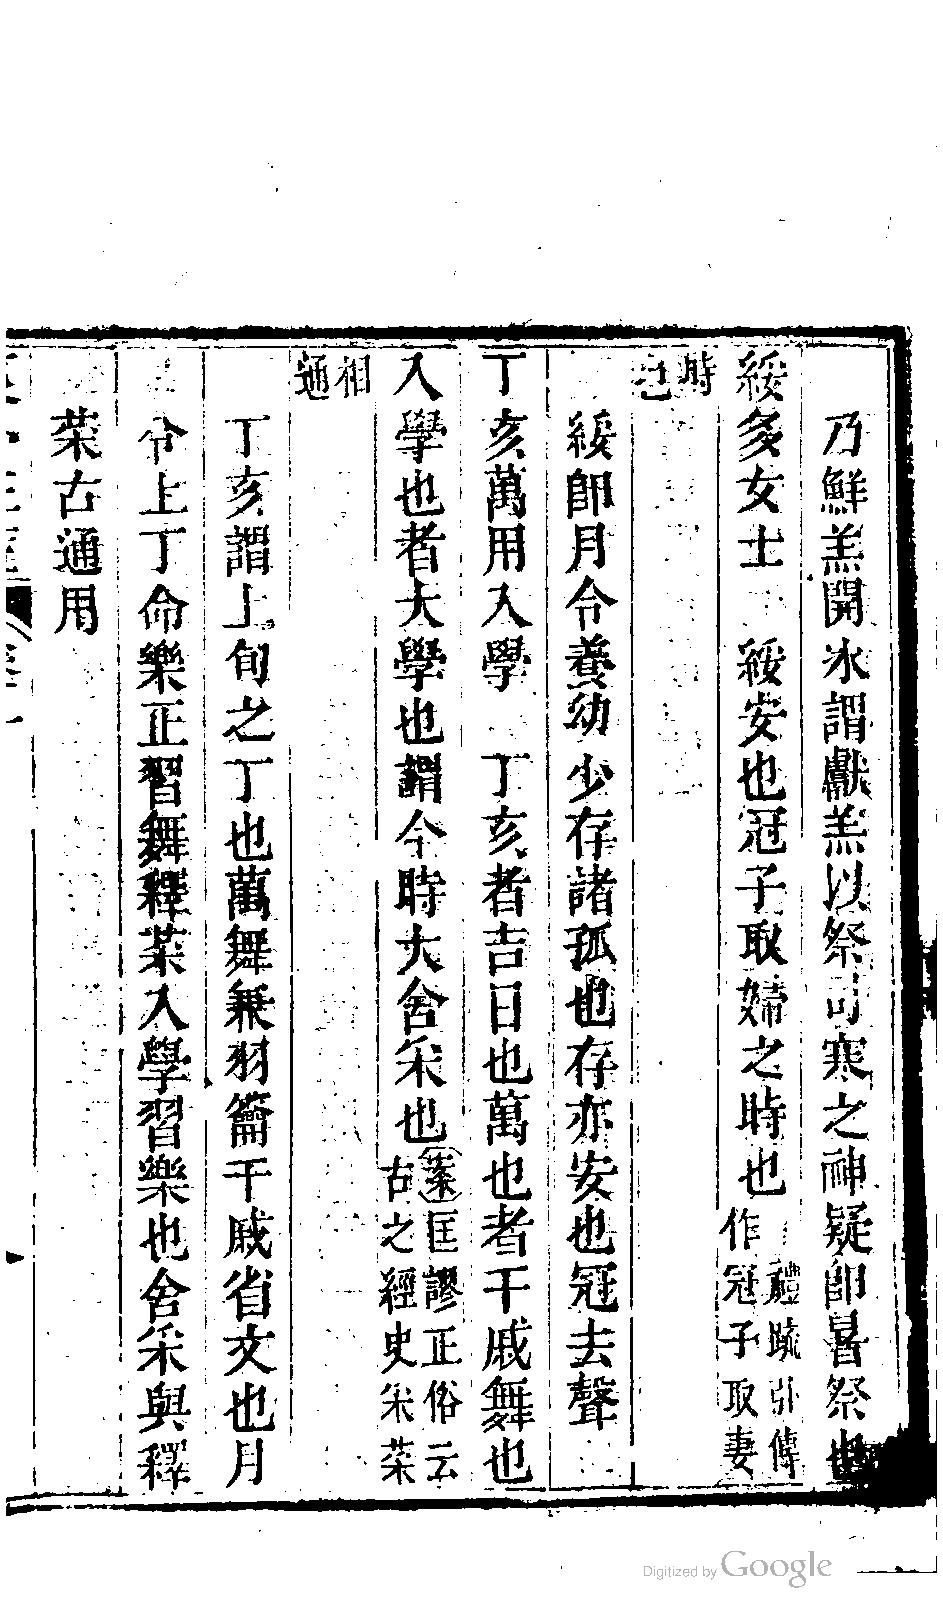 乃鮮羔開冰謂獻羔以祭司寒之神疑即暑祭也
綏多女士　綏安也冠子取婦之時也
禮疏引傳
作冠子取妻
時
也
綏即月令養幼少存諸孤也存亦安也冠去聲
丁亥萬用入學　丁亥者吉日也萬也者干戚舞也
入學也者大學也謂今時大舍采也
案匡謬正俗云
古之經史采菜
相
通
丁亥謂上旬之丁也萬舞兼羽籥干戚省文也月
令上丁命樂正習舞釋菜入學習樂也舍采與釋
菜古通用
Digitized by Google